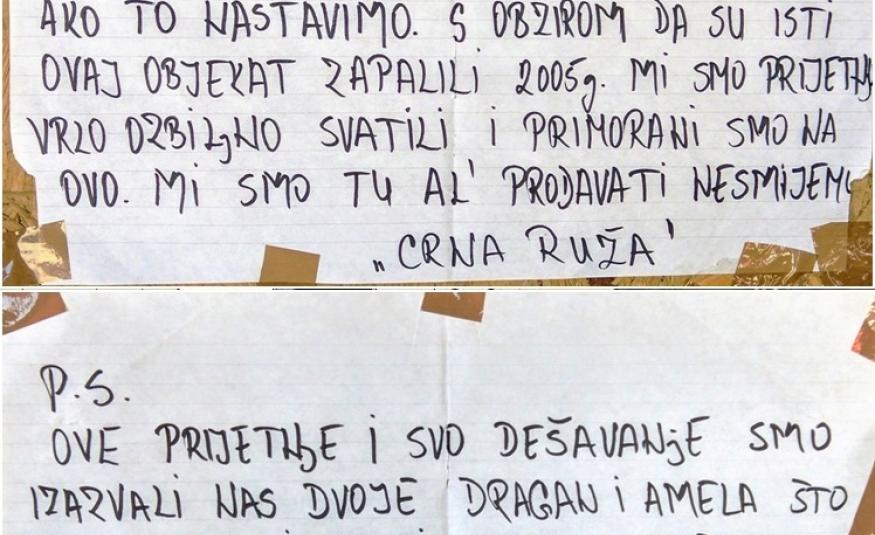 AKO TO NASTAVIMO. S OBZIROM DA SU ISTI
OVAJ OBJEKAT ZAPALILI 2005g. MI SMO PRIJETNJ
VRLO OZBILjNO SVATILI I PRIMORANI SMO NA
OVO. MI SMO TU AL' PRODAVATI NESMIJEMO
„CRNA RUŽA'
P.S.
OVE PRIJETNjE I SVO DEŠAVANjE SMO
IZAZVALI NAS DVOJE DRAGAN I AMELA ŠTO